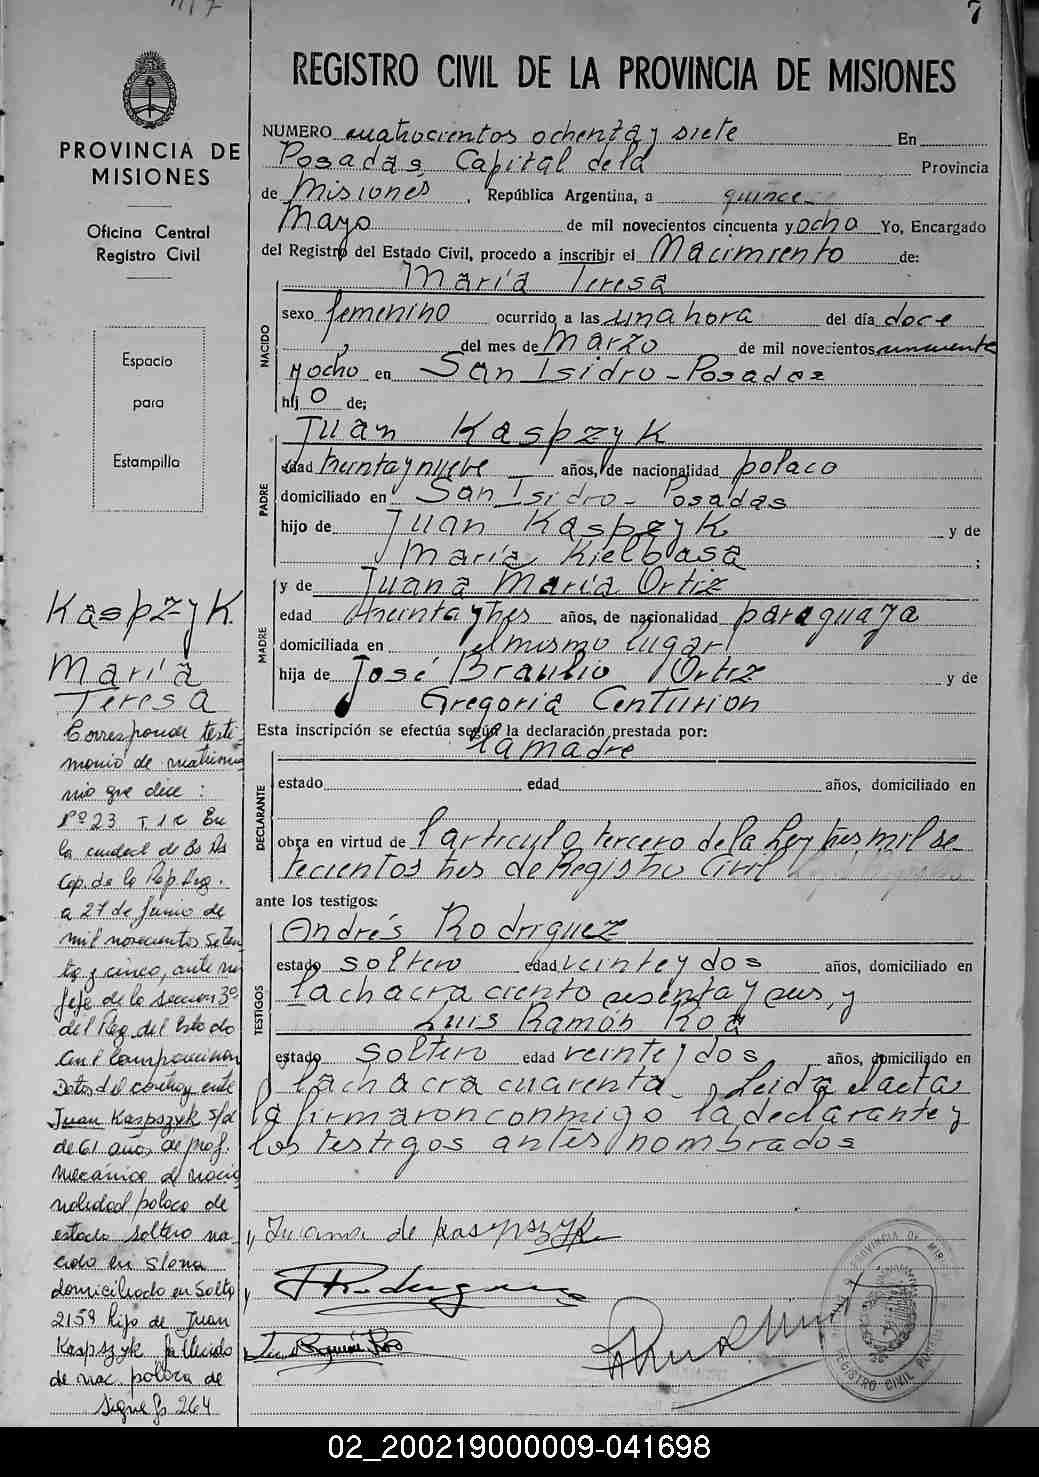 7
REGISTRO CIVIL DE LA PROVINCIA DE MISIONES
PROVINCIA DE
MISIONES
Oficina Central
Registro Civil
Espacio
para
Estampilla
NUMERO cuatrocientos ochenta y siete En
Posadas, Capital de la Provincia
de Misiones, República Argentina, a quince
Mayo de mil novecientos cincuenta y ocho Yo, Encargado
del Registro del Estado Civil, procedo a inscribir el Nacimiento de:
María Teresa
NACIDO
sexo femenino ocurrido a las una hora del día doce
del mes de Marzo de mil novecientos cincuenta
y ocho en San Isidro - Posadas
hij o de;
PADRE
Juan Kaspzyk
edad treinta y nueve años, de nacionalidad polaco
domiciliado en San Isidro - Posadas
hijo de Juan Kaspzyk y de
María Kielbasa ;
MADRE
y de Juana María Ortiz
edad treinta y tres años, de nacionalidad paraguaya
domiciliada en el mismo lugar
hija de José Braulio Ortiz y de
Gregoria Centurion
Esta inscripción se efectúa según la declaración prestada por:
la madre
DECLARANTE
estado edad años, domiciliado en
obra en virtud de l artículo tercero de la Ley tres mil se-
tecientos tres de Registro Civil
ante los testigos:
TESTIGOS
Andrés Rodriguez
estado soltero edad veinte y dos años, domiciliado en
la chacra ciento sesenta y seis, y
Luis Ramón Roa
estado soltero edad veinte y dos años, domiciliado en
la chacra cuarenta. Leida el acta
la firmaron conmigo la declarante y
los testigos antes nombrados
Juana de Kaspszyk
Luis Ramón Roa
PROVINCIA DE MISIONES
REGISTRO CIVIL
Kaspzyk.
María
Teresa
Corresponde testi-
monio de matrimo
nio que dice:
Nº 23 T. 1 C En
la ciudad de Bs As
Cap. de la Rep. Arg.
a 27 de Junio de
mil novecientos seten
ta y cinco, ante mi
Jefe de la Seccion 3º
del Reg. del Estado
Civil Comparecieron
Datos del contrayente
Juan Kaspszyk s/d
de 61 años de prof.
mecánico de nacio
nalidad polaca de
estado soltero na-
cido en Slona
domiciliado en Salta
2159 hijo de Juan
Kaspszyk fallecido
de nac. polaca de
Sigue fs 264
02_200219000009-041698